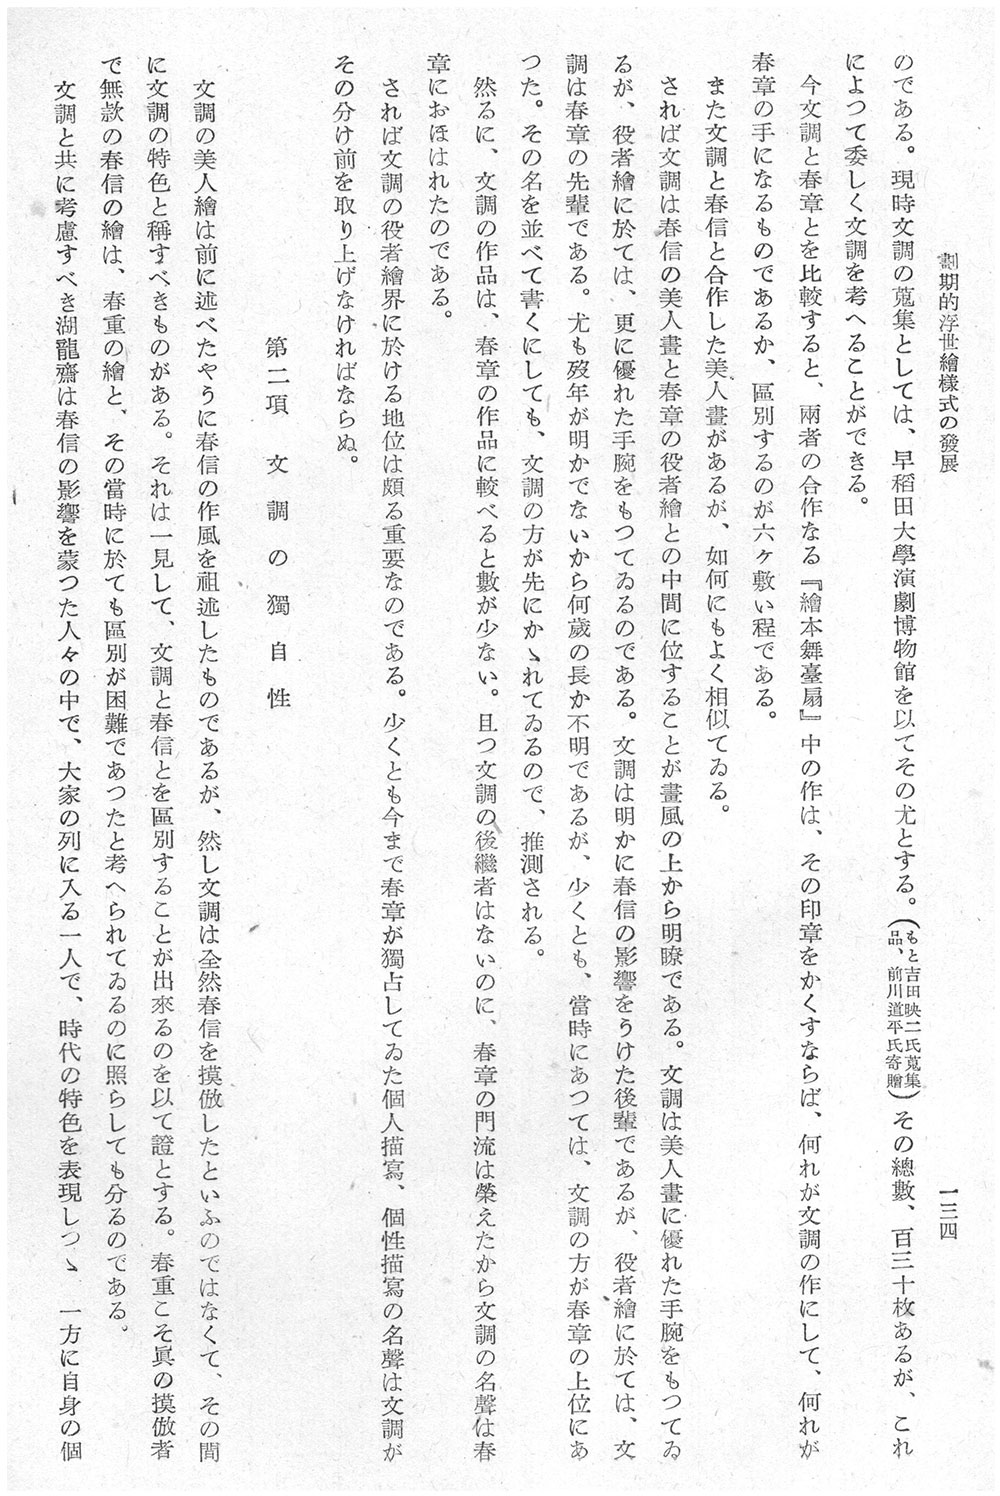 劃期的浮世繪樣式の發展
一三四
のである。現時文調の蒐集としては、早稻田大學演劇博物館を以てその尤とする。(もと吉田映二氏蒐集品、前川道平氏寄贈)その總數、百三十枚あるが、これ
によつて委しく文調を考へることができる。
今文調と春章とを比較すると、兩者の合作なる『繪本舞臺扇』中の作は、その印章をかくすならば、何れが文調の作にして、何れが
春章の手になるものであるか、區別するのが六ヶ敷い程である。
また文調と春信と合作した美人畫があるが、如何にもよく相似てゐる。
されば文調は春信の美人畫と春章の役者繪との中間に位することが畫風の上から明瞭である。文調は美人畫に優れた手腕をもつてゐ
るが、役者繪に於ては、更に優れた手腕をもつてゐるのである。文調は明かに春信の影響をうけた後輩であるが、役者繪に於ては、文
調は春章の先輩である。尤も歿年が明かでないから何歲の長か不明であるが、少くとも、當時にあつては、文調の方が春章の上位にあ
つた。その名を並べて書くにしても、文調の方が先にかゝれてゐるので、推測される。
然るに、文調の作品は、春章の作品に較べると數が少ない。且つ文調の後繼者はないのに、春章の門流は榮えたから文調の名聲は春
章におほはれたのである。
されば文調の役者繪界に於ける地位は頗る重要なのである。少くとも今まで春章が獨占してゐた個人描寫、個性描寫の名聲は文調が
その分け前を取り上げなければならぬ。
第二項　文調の獨自性
文調の美人繪は前に述べたやうに春信の作風を祖述したものであるが、然し文調は全然春信を摸倣したといふのではなくて、その間
に文調の特色と稱すべきものがある。それは一見して、文調と春信とを區別することが出來るのを以て證とする。春重こそ眞の摸倣者
で無款の春信の繪は、春重の繪と、その當時に於ても區別が困難であつたと考へられてゐるのに照らしても分るのである。
文調と共に考慮すべき湖龍齋は春信の影響を蒙つた人々の中で、大家の列に入る一人で、時代の特色を表現しつゝ　一方に自身の個